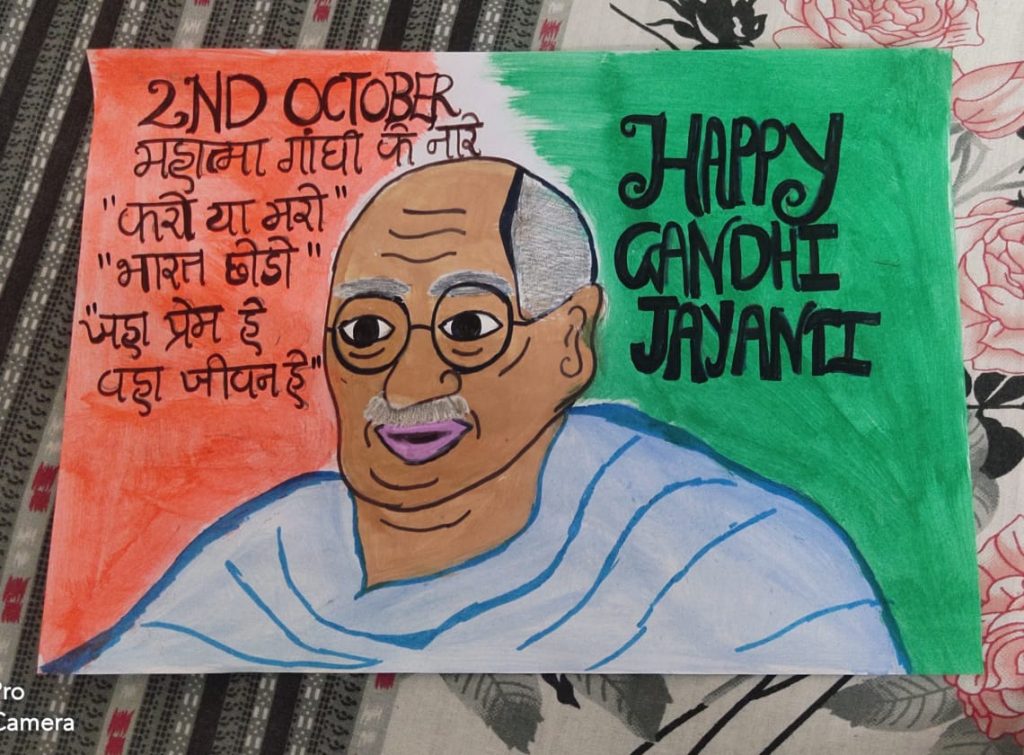 2ND OCTOBER
महात्मा गांधी के नारे
"करो या मरो"
"भारत छोडो"
"जहा प्रेम हे
वहा जीवन हे"
HAPPY
GANDHI
JAYANTI
Pro
Camera